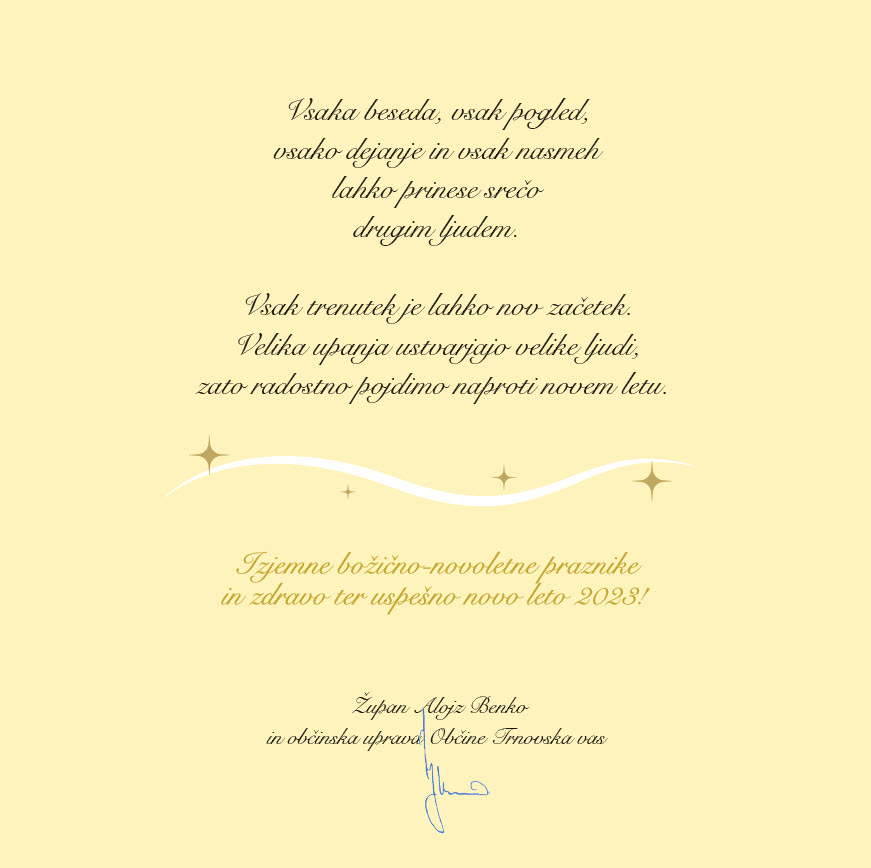 Vsaka beseda, vsak pogled,
vsako dejanje in vsak nasmeh
lahko prinese srečo
drugim ljudem.
Vsak trenutek je lahko nov začetek.
Velika upanja ustvarjajo velike ljudi,
zato radostno pojdimo naproti novem letu.
Izjemne božično-novoletne praznike
in zdravo ter uspešno novo leto 2023!
Župan Alojz Benko
in občinska uprava Občine Trnovska vas